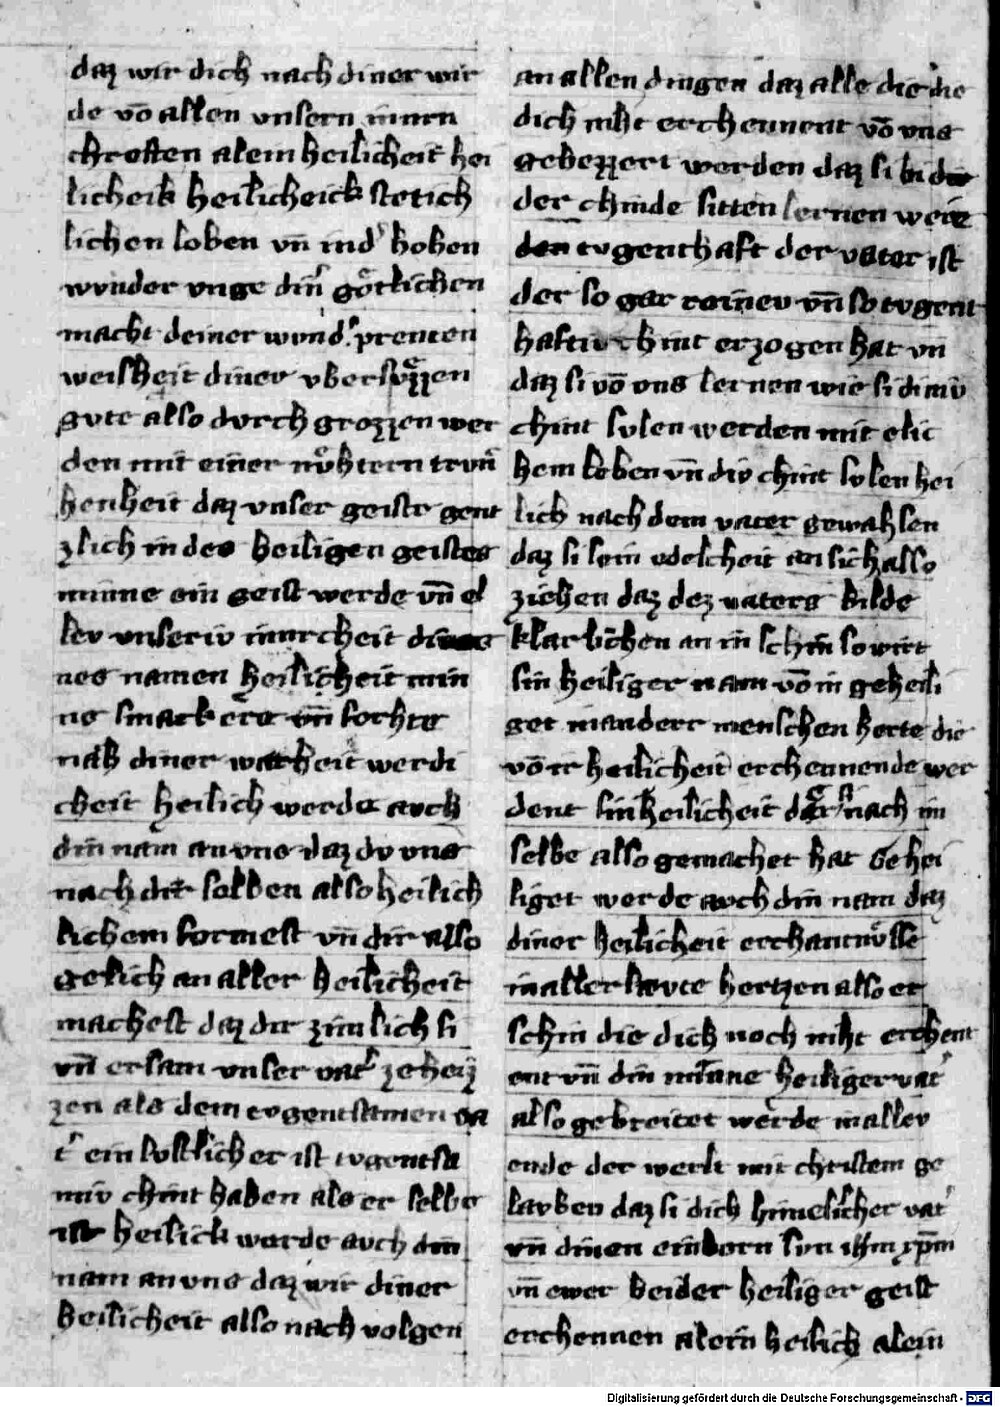 daz wir dich nach diner wir
de vō allen vnsern innrn
chreften alein heilicheit hei
licheik heilicheick stetich
lichen loben vn̄ ind hohen
wunder vnge din gótlichen
macht deiner wund prenten
weisheit diner vbersvzzen
gvte also dvrch grozzen wer
den mit einer nv̊htern trvn
henheit daz vnser geistr gent
zlich in des heiligen geistes
minne ein geist werde vn̄ el
lev vnseriv innrcheit
nes namen heilicheit min
ne smack ere vn̄ vorhte
nah diner warheit werdi
cheit heilich werde avch
din nam an vns daz dv vns
nach dir selben also heilich
lichem formest vn̄ dir also
gelich an aller heilicheit
machest daz dir zimlich si
vn̄ ersam vnser vat' zeheiz
zen als dem tvgentsamen va
t' ein lostlicher ist tvgentsa
miv chint haben als er selbe
ist heilick werde avch din
nam an vns daz wir diner
heilicheit also nach volgen
an allen dingen daz alle die die
dich niht erchennent vō vns
gebezzert werden daz si bi
der chinde sitten lernen wie
tvgenthaft der vater ist
der so gar reinev vn̄ so tvgent
haftiv chint erzogen hat vn̄
daz si vō vns lernen wie si diniv
chint svlen werden mit elic
hem leben vn̄ div chint svlen hei
lich nach dem vater gewahsen
daz si sein edelcheit an sich also
ziehen daz dez vaters bilde
klarlichen an in schin so wirt
sin heiliger nam vō in geheili
get in anderr menschen herte die
vō ir heilicheit erchennende wer
dent sin heilicheit der nach im
selbe also gemachet hat Gehei
liget werde avch din nam daz
diner heilicheit erchantnv̊sse
in aller lavte hertzen also er
schin die dich noch niht erchent
ent vn̄ din nam heiliger vat'
also gebreitet werde in allev
ende der werlt mit christem ge
lavben daz si dich himelischer vat'
vn̄ dinen einborn svn ihm xp̄m
vn̄ ewer beider heiliger geist
erchennen alein heilich alein
Digitalisierung gefördert durch die Deutsche Forschungsgemeinschaft - DFG